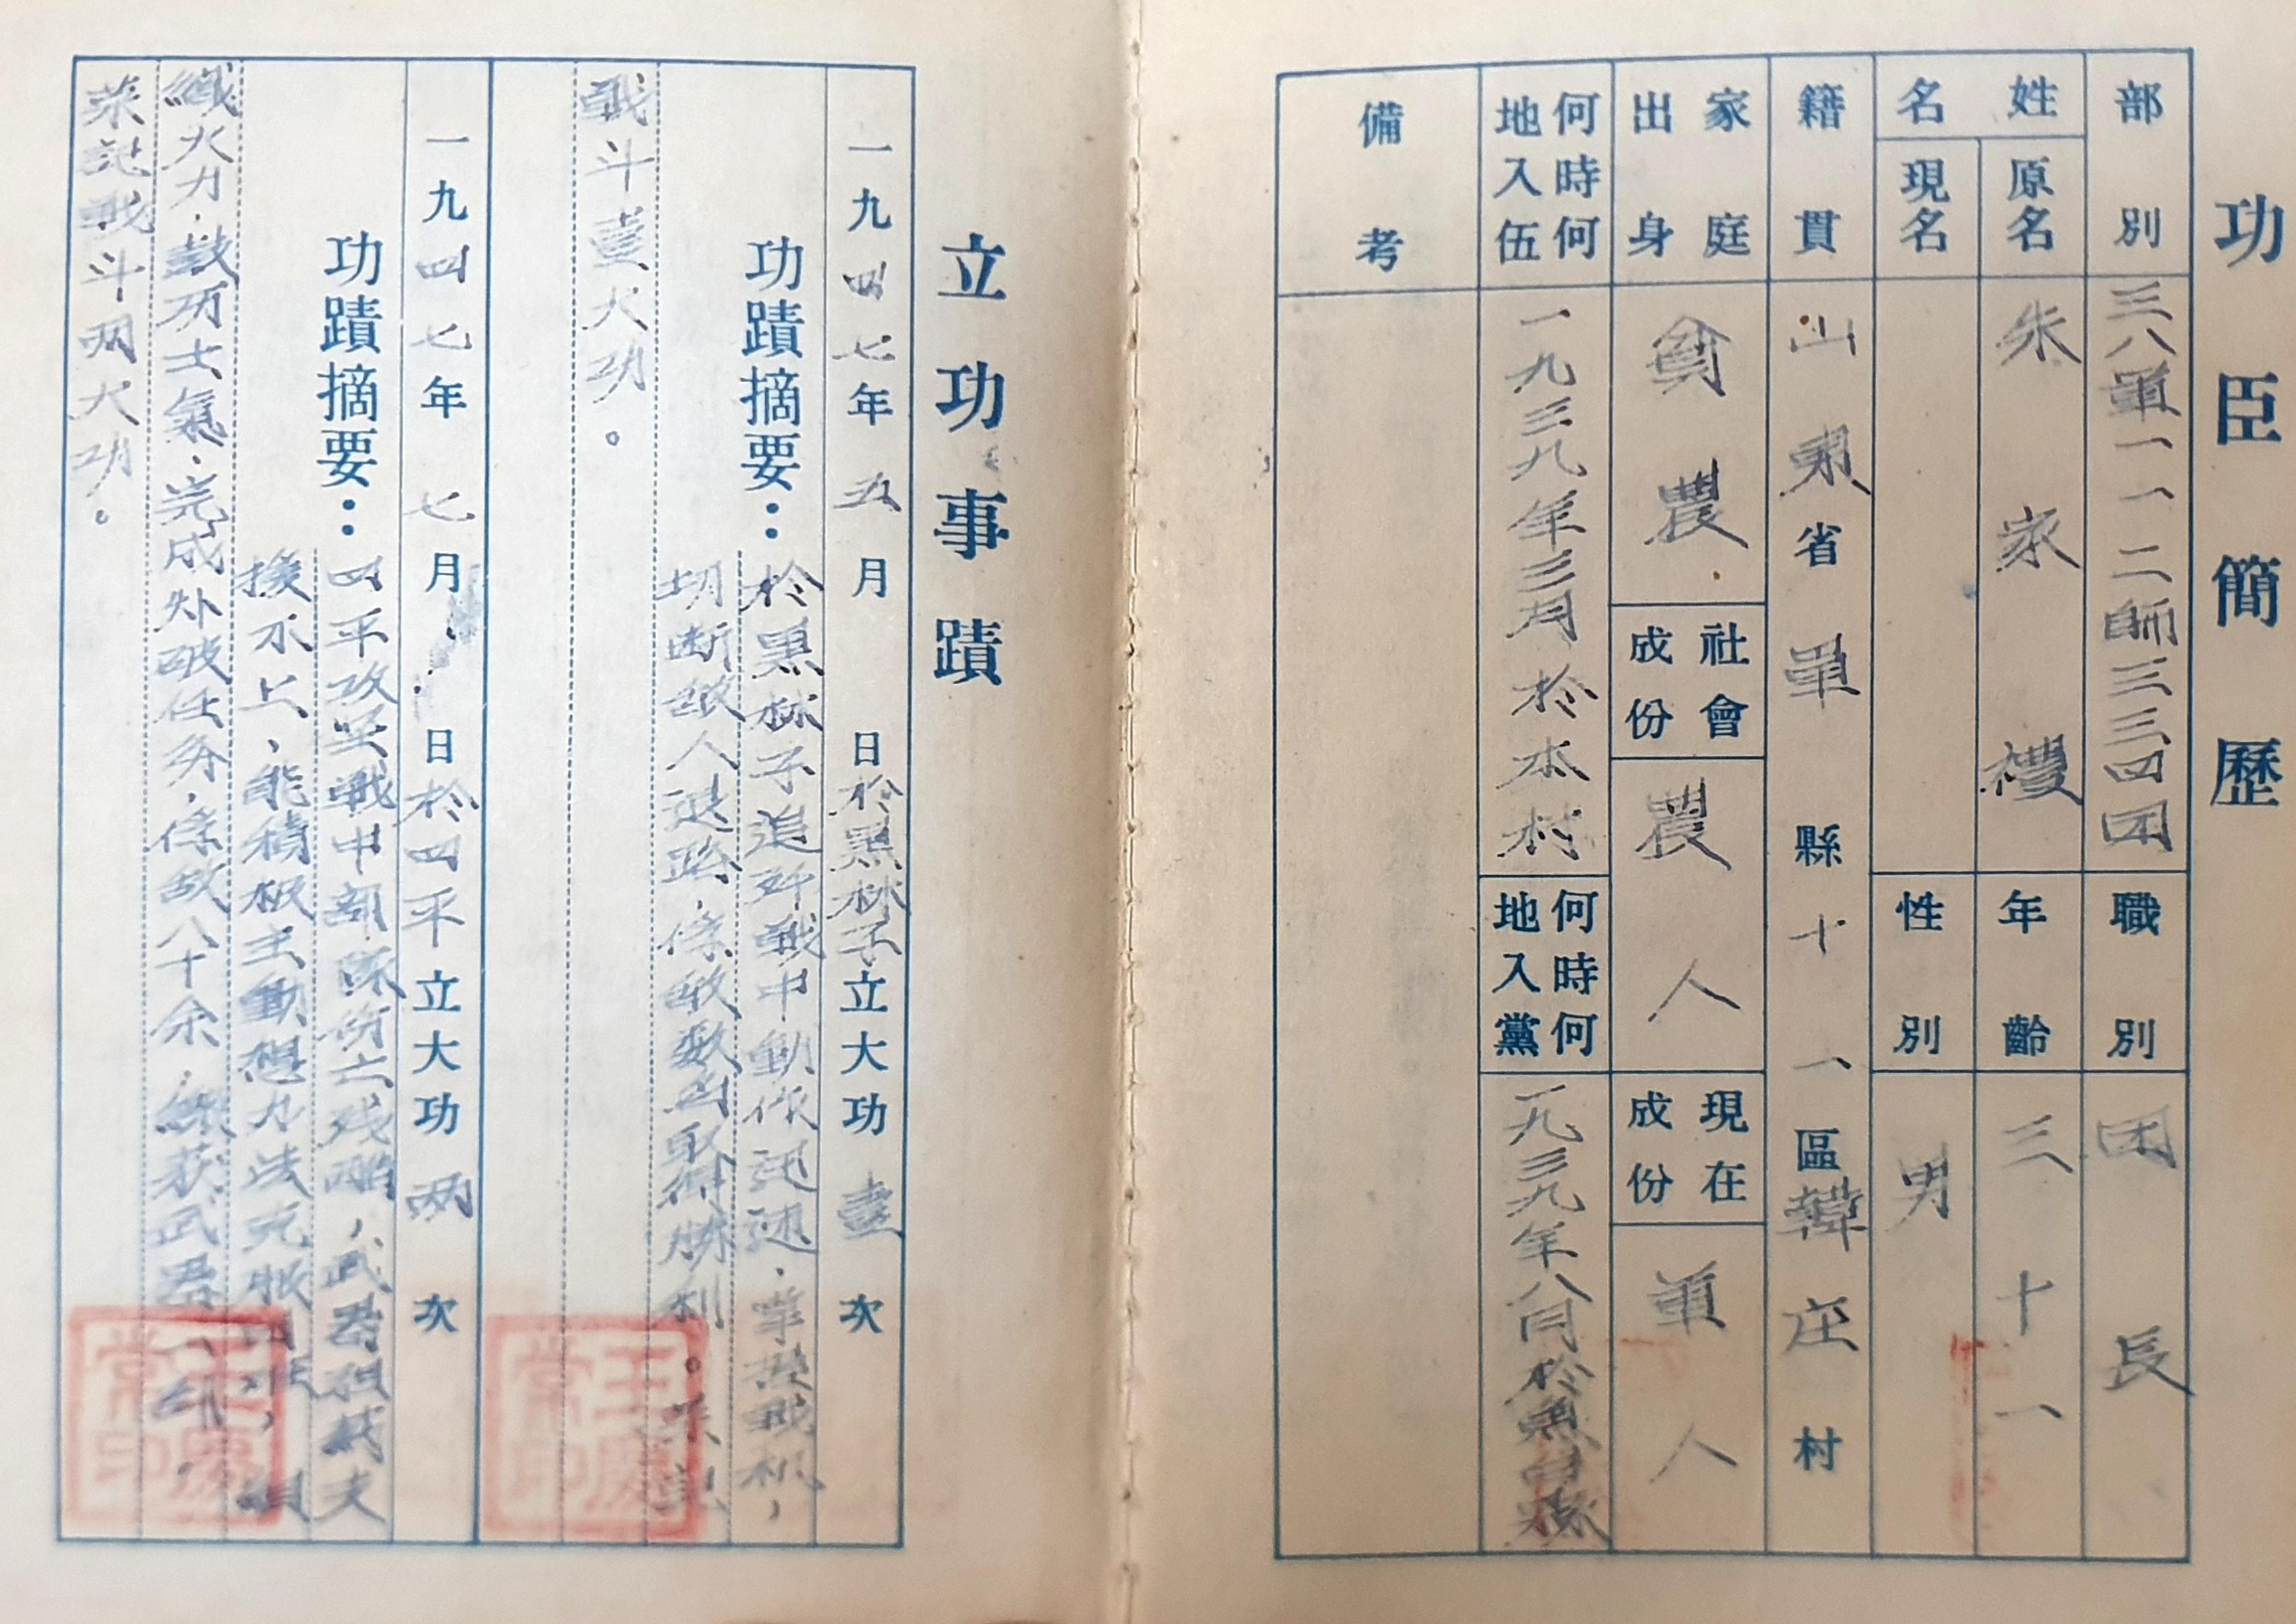 功臣簡歷
部別
三八軍一一二師三三四团
職別
团長
姓名
原名
朱家禮
年齡
三十一
現名
性別
男
籍貫
山東省單縣十一區韓庄村
家庭出身
貧農
社會成份
農人
現在成份
軍人
何時何地入伍
一九三九年三月於本村
何時何地入黨
一九三九年八月於魚台縣
備考
立功事蹟
一九四七年五月 日於黑林子立大功壹次
功蹟摘要：
於黑林子追歼戰中動作迅速，掌握戰机，
切断敌人退路，俘敌数百取得勝利。
戰斗壹大功。
一九四七年七月 日於四平立大功两次
功蹟摘要：
四平攻坚戰中部隊伤亡残酷，武器弹药
接不上，能積极主動想办法克服困难，組
織火力，鼓励士氣，完成外破任务，俘敌八十余，繳获武器
荣記戰斗两大功。
王慶常印
王慶常印